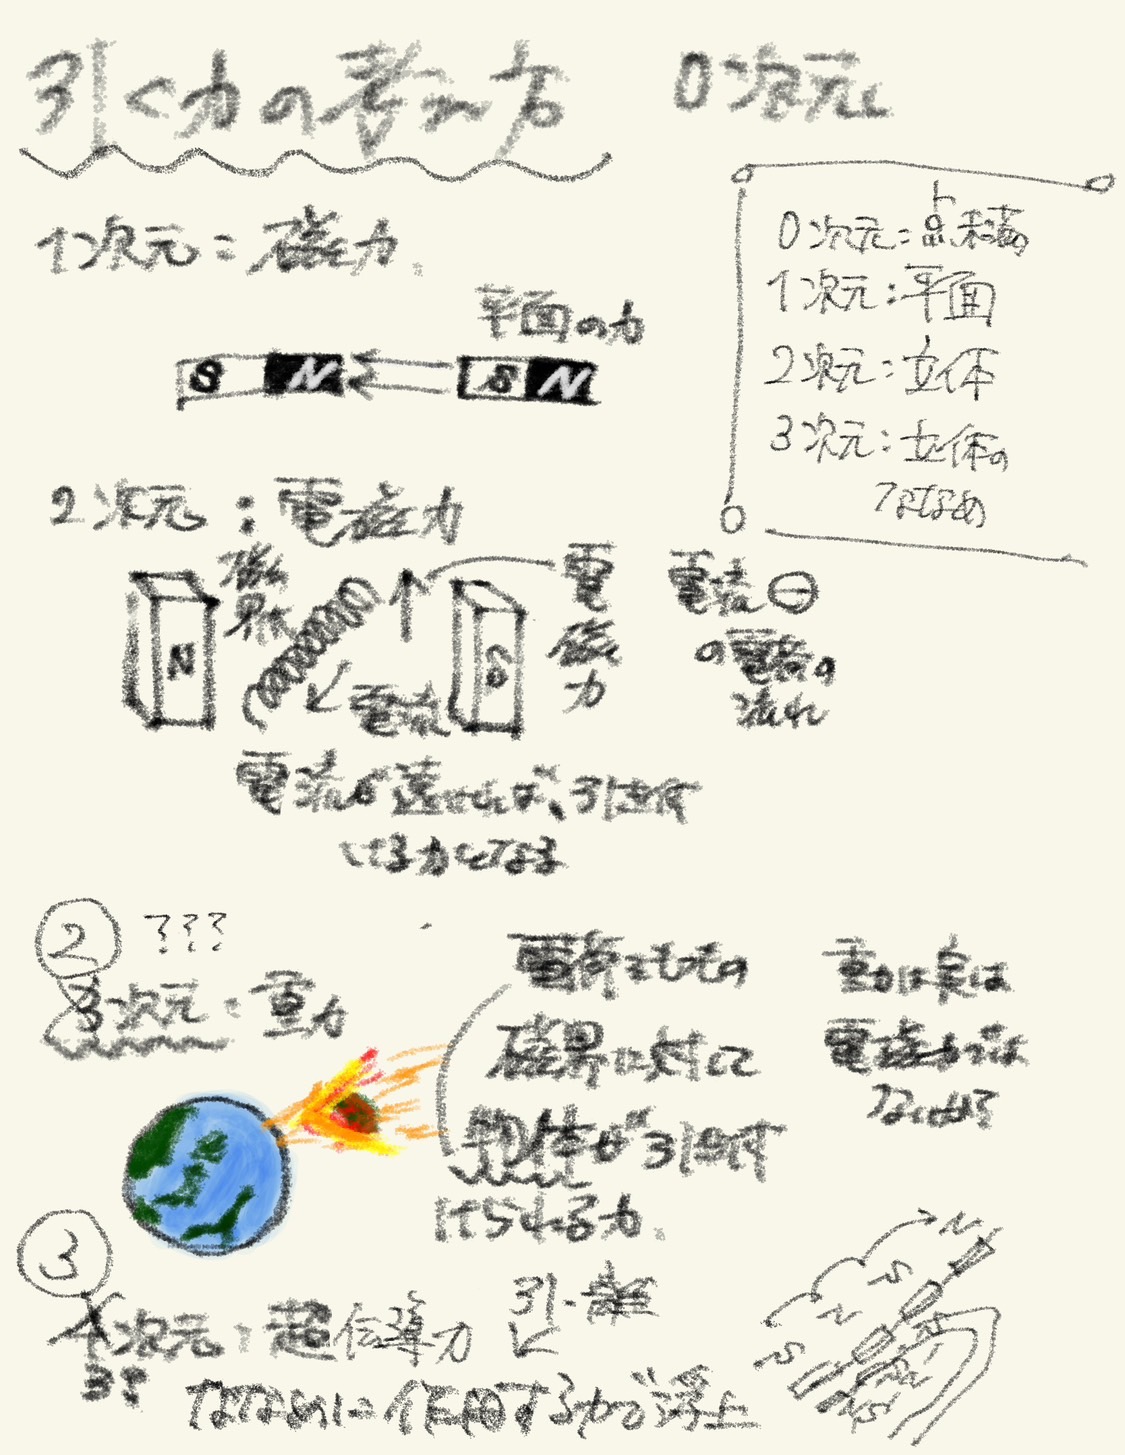 引く力の考え方
0次元
1次元=磁力
平面の力
S N
S N
0次元:点
1次元:平面
2次元:立体
3次元:立体の
ななめ
2次元:電磁力
磁界
N
S
電流
電磁力
電流⊖
の電荷の
流れ
電流が
ば、引き付
ける力となる
② ???
3次元:重力
電荷をもたの
磁界に対して
物体が引き付
けられる力
重力は実は
電磁力では
ないか?
③
4次元:超伝導力
3?
引・離
ななめに作用する力で浮上
N
S
N
S